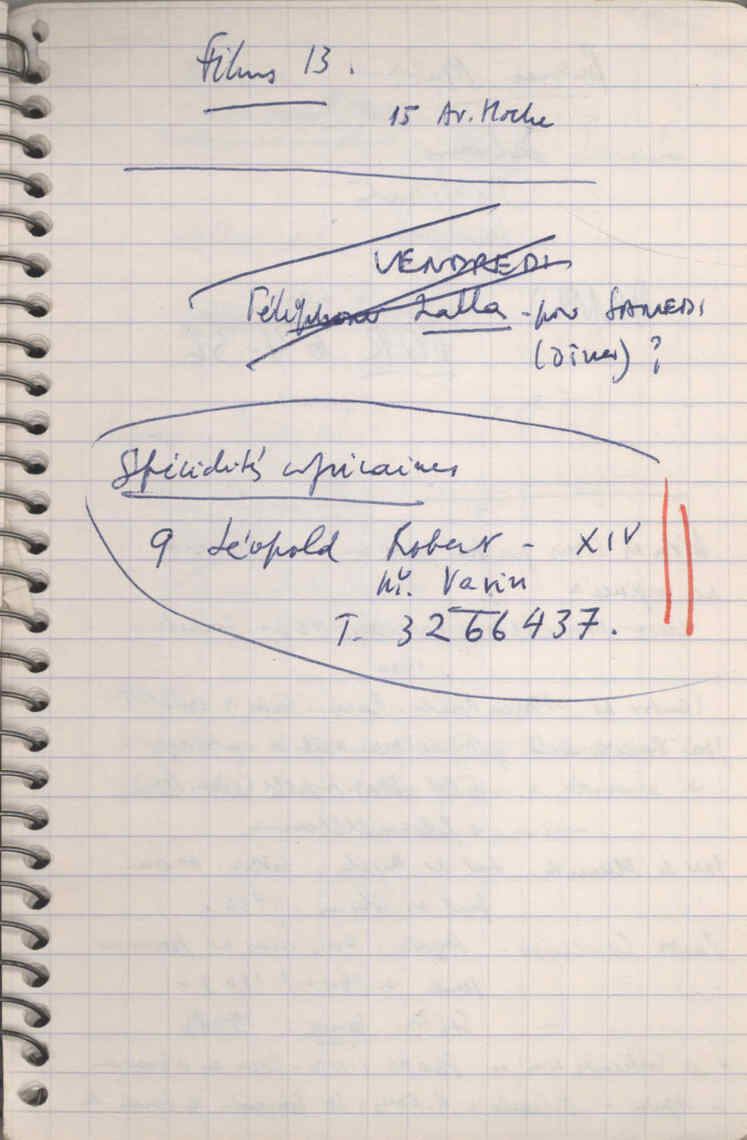 Films 13.
15 Av. Hoche
VENDREDI
Téléphoner Lalla - pour SAMEDI
(Dîner) ?
Spécialités africaines
9 Léopold Robert - XIV
Mº. Vavin
T. 3266437.